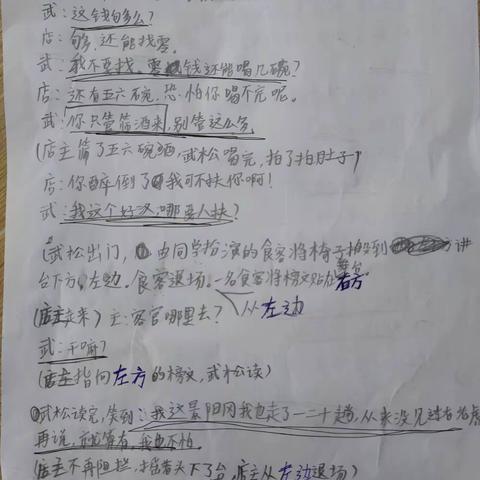 武：这钱够么？
店：够，还能找零。
武：我不要找，零钱还能喝几碗？
店：还有五六碗，恐怕你喝不完呢。
武：你只管筛酒来，别管这么多。
(店主筛了五六碗酒，武松喝完，拍了拍肚子)
店：你醉倒了我可不扶你啊！
武：我这个好汉，哪要人扶？
(武松出门，由同学扮演的食客将椅子搬到讲
台下方，左边。食客退场。一名食客将榜文贴在舞台右方。
(店主走来) 主：客官哪里去？ 从左边
武：干嘛？
(店主指向左方的榜文，武松读)
武松读完，笑到：我这景阳冈我也走了一二十趟，从来没见过有老虎
再说，就算有，我也不怕。
(店主不再阻拦，摇着头下了台，店主从左边退场)